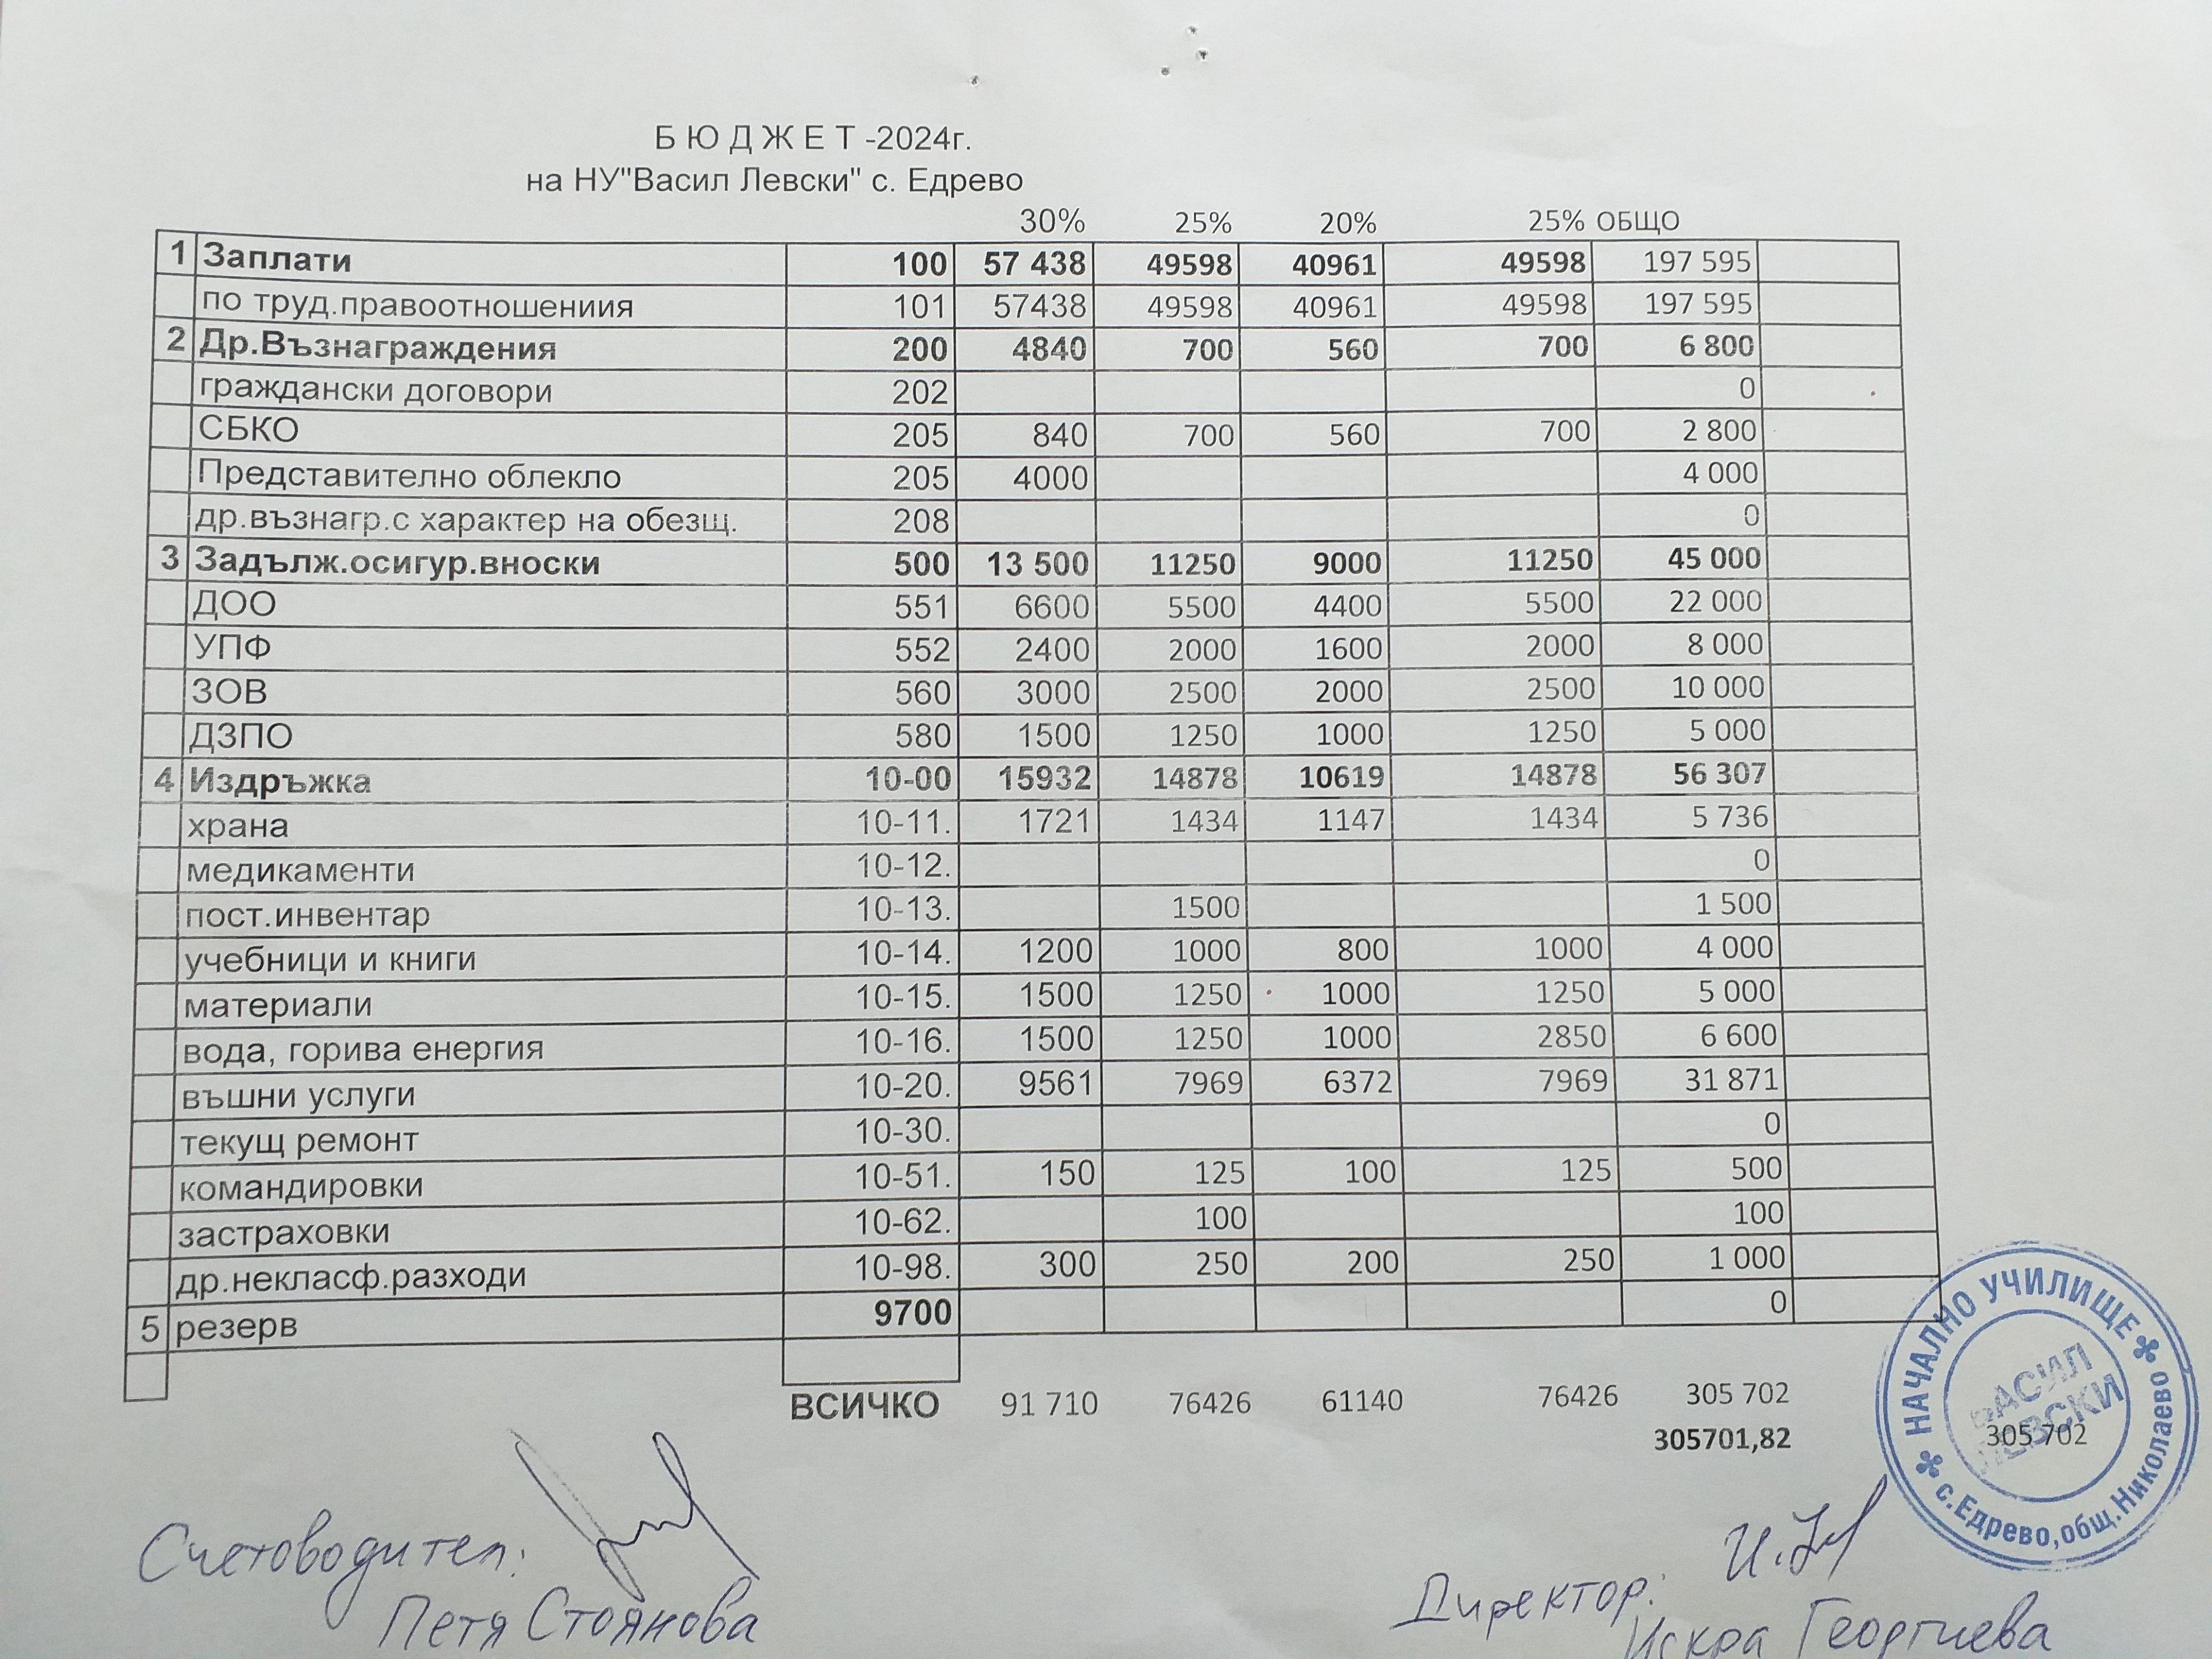 Б Ю Д Ж Е Т -2024г.
на НУ"Васил Левски" с. Едрево
30% 25% 20% 25% ОБЩО
1 Заплати 100 57 438 49598 40961 49598 197 595
по труд.правоотношениия 101 57438 49598 40961 49598 197 595
2 Др.Възнаграждения 200 4840 700 560 700 6 800
граждански договори 202 0
СБКО 205 840 700 560 700 2 800
Представително облекло 205 4000 4 000
др.възнагр.с характер на обезщ. 208 0
3 Задълж.осигур.вноски 500 13 500 11250 9000 11250 45 000
ДОО 551 6600 5500 4400 5500 22 000
УПФ 552 2400 2000 1600 2000 8 000
ЗОВ 560 3000 2500 2000 2500 10 000
ДЗПО 580 1500 1250 1000 1250 5 000
4 Издръжка 10-00 15932 14878 10619 14878 56 307
храна 10-11. 1721 1434 1147 1434 5 736
медикаменти 10-12. 0
пост.инвентар 10-13. 1500 1 500
учебници и книги 10-14. 1200 1000 800 1000 4 000
материали 10-15. 1500 1250 1000 1250 5 000
вода, горива енергия 10-16. 1500 1250 1000 2850 6 600
въшни услуги 10-20. 9561 7969 6372 7969 31 871
текущ ремонт 10-30. 0
командировки 10-51. 150 125 100 125 500
застраховки 10-62. 100 100
др.некласф.разходи 10-98. 300 250 200 250 1 000
5 резерв 9700 0
ВСИЧКО 91 710 76426 61140 76426 305 702
305701,82 305 702
НАЧАЛНО УЧИЛИЩЕ
ВАСИЛ
ЛЕВСКИ
с.Едрево,общ.Николаево
Счетоводител:
Петя Стоянова
Директор:
Искра Георгиева